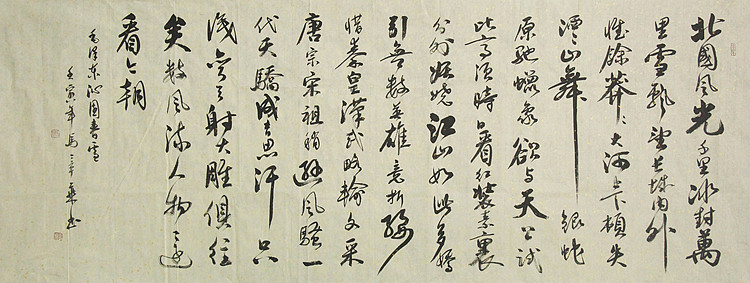 北國风光千里冰封萬
里雪飄望長城内外
惟餘莽々大河上下頓失
滔々山舞銀蛇
原馳蠟象欲与天公試
比高須晴日看紅裝素裹
分外妖嬈江山如此多嬌
引無數英雄竞折腰
惜秦皇漢武略輸文采
唐宗宋祖稍遜風騷一
代天驕成吉思汗只
識彎弓射大雕俱往
矣數風流人物還
看今朝
毛澤東沁園春雪
壬寅年馬